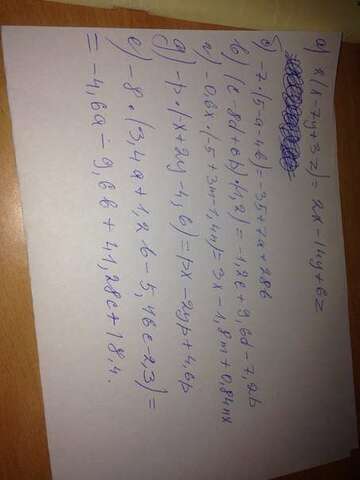 а) 2(x - 7y + 3z) = 2x - 14y + 6z
б) -7·(5 - a + 4b) = -35 + 7a + 28b
в) (c - 8d + 6b)·(-1,2) = -1,2c + 9,6d - 7,2b
г) -0,6x·(-5 + 3m - 1,4n) = 3x - 1,8m + 0,84nx
д) -p·(-x + 2y - 4,6) = px - 2yp + 4,6p
е) -8·(3,4a + 1,2b - 5,46c - 2,3) =
= -4,6a - 9,6b + 41,28c + 18,4.